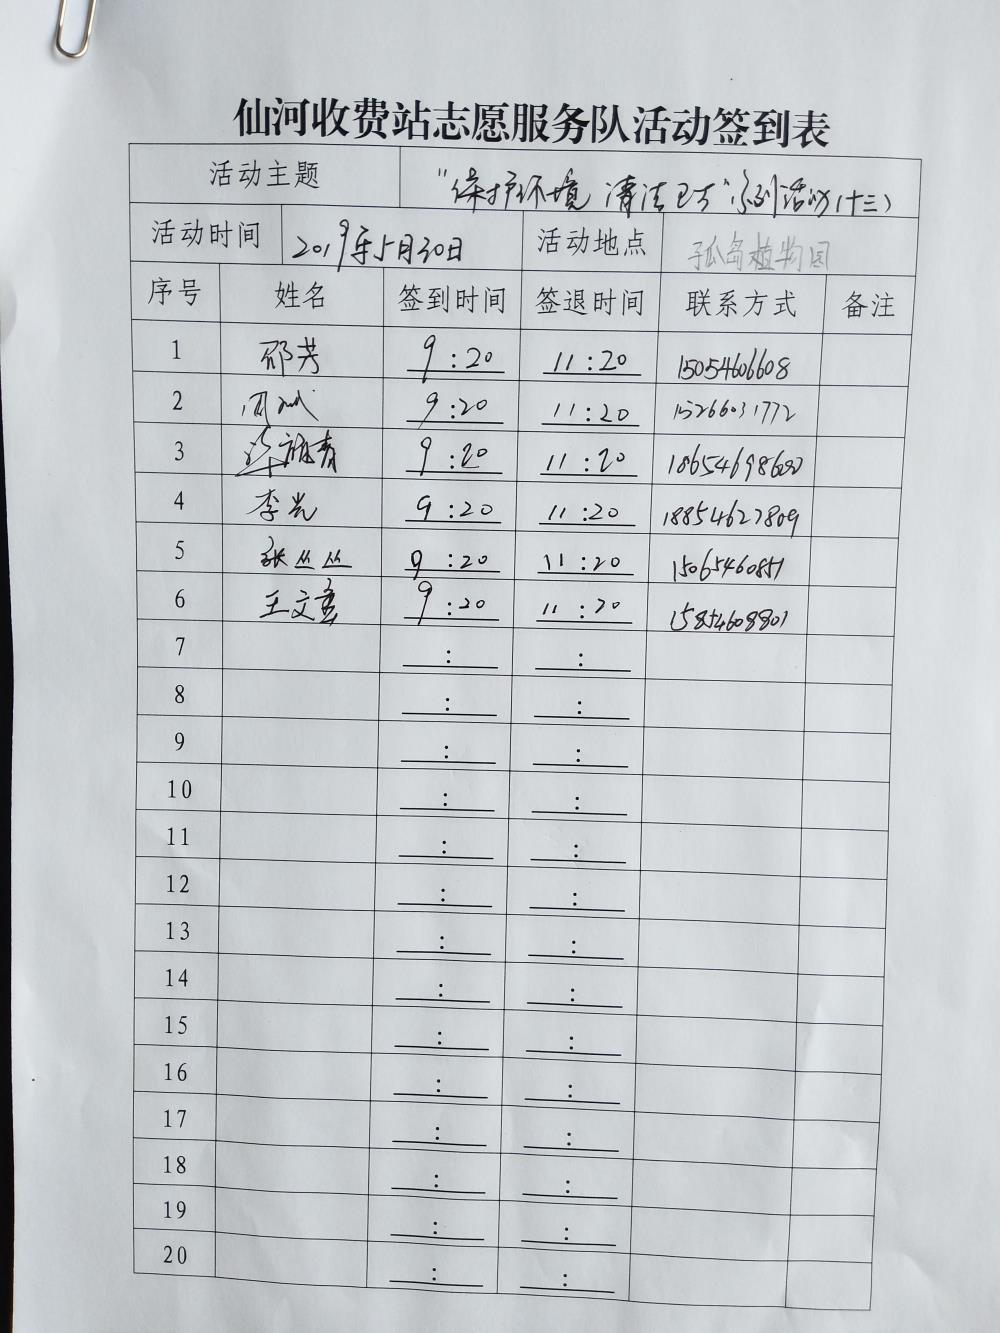 仙河收费站志愿服务队活动签到表
活动主题 "保护环境 清洁卫士"系列活动(十三)
活动时间 2019年5月30日 活动地点 孤岛植物园
序号 姓名 签到时间 签退时间 联系方式 备注
1 邵芳 9:20 11:20 15054606608
2 周 9:20 11:20 15266031772
3 9:20 11:20
4 李光 9:20 11:20 18854627809
5 张丛丛 9:20 11:20 15065460851
6 王文 9:20 11:20 15854608801
7 : :
8 : :
9 : :
10 : :
11 : :
12 : :
13 : :
14 : :
15 : :
16 : :
17 : :
18 : :
19 : :
20 : :